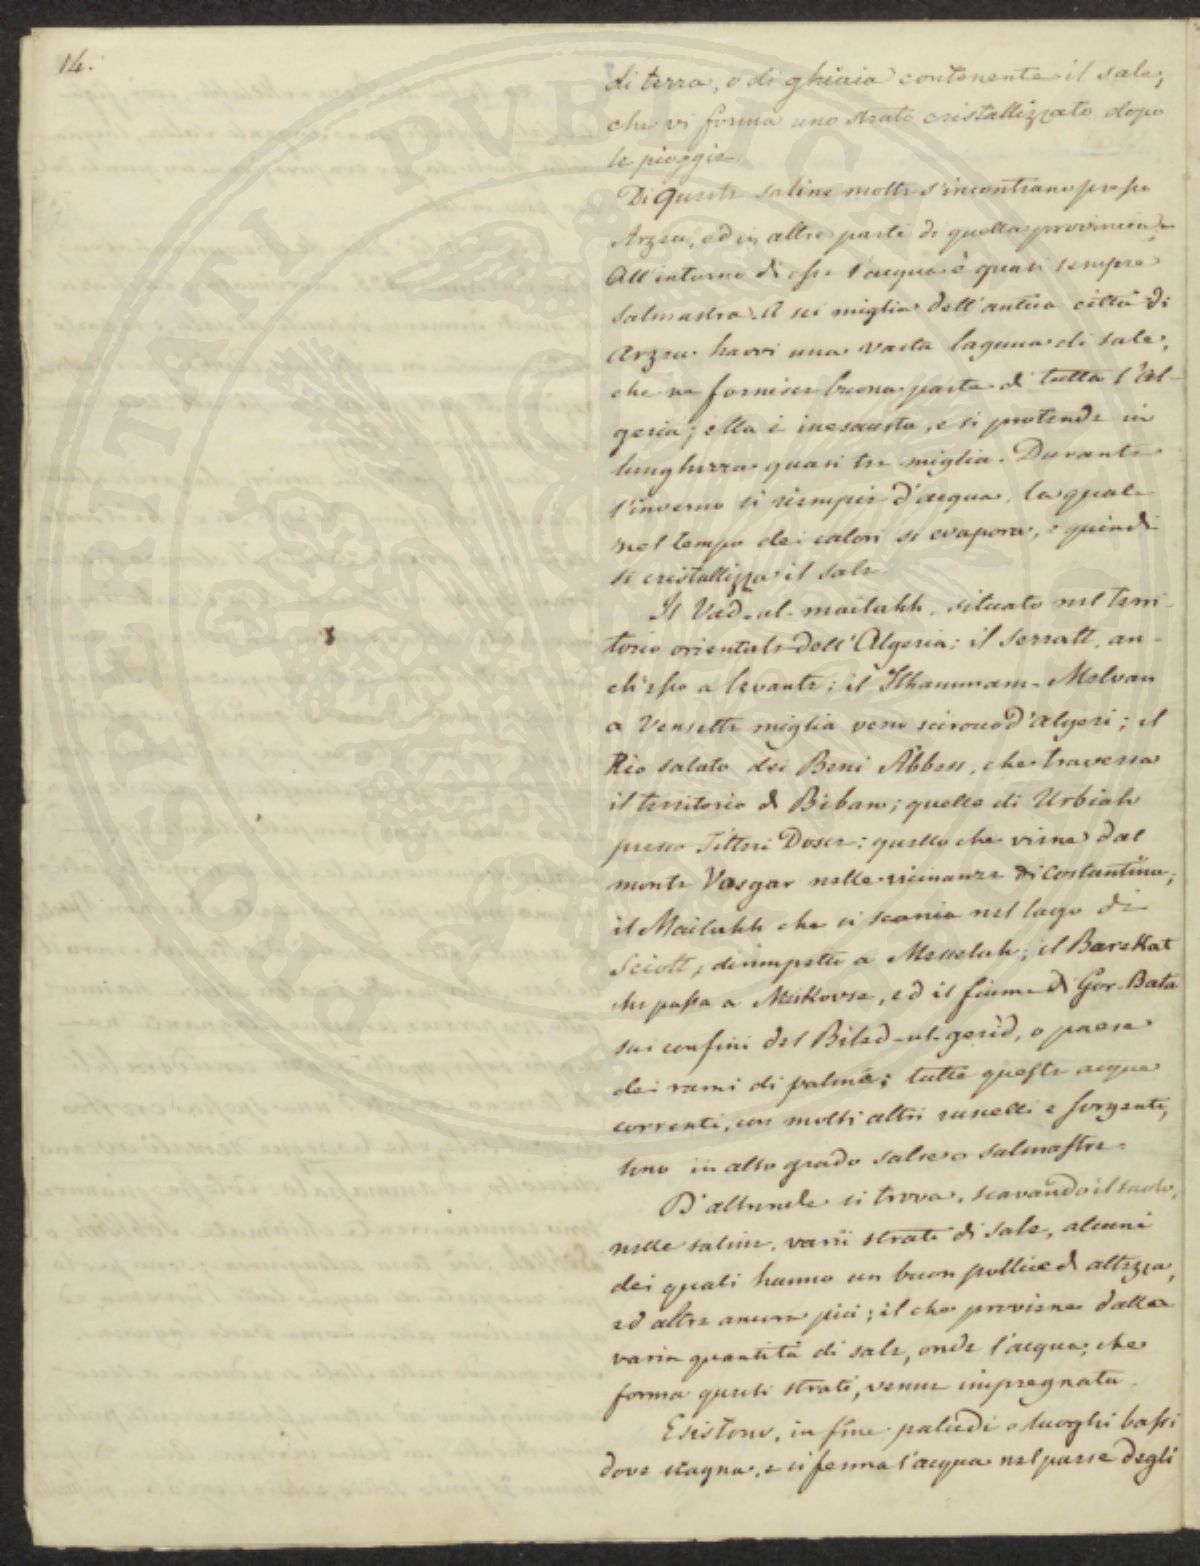 14.
di terra, o di ghiaia contenente il sale,
che vi forma uno strato cristallizzato dopo
le pioggie.
Di queste saline molte s'incontrano presso
Arzeu, ed in altre parti di quella provincia.
All'intorno di esse l'acqua è quasi sempre
salmastra. A sei miglia dell'antica città di
Arzeu havvi una vasta laguna di sale,
che ne fornisce buona parte di tutta l'Al-
geria; ella è inesausta, e si protende in
lunghezza quasi tre miglia. Durante
l'inverno si riempie d'acqua, la quale
nel tempo dei calori si evapora, e quindi
si cristallizza il sale
Il Vad-al-mailahh, situato nel terri-
torio orientale dell'Algeria; il Serratt, an-
ch'esso a levante; il Hhammam-Melvan
a Vensette miglia verso scirocco d'Algeri; il
Rio salato dei Beni Abbess, che traversa
il territorio di Biban; quello di Urbiah
presso Titteri Dosce; quello che viene dal
monte Vasgar nelle vicinanze di Costantina;
il Mailahh che si scarica nel lago di
Sciott, dirimpetto a Messelah; il Barekkat
che passa a Niskovse, ed il fiume di Gor-Bata
sui confini del Biled-ul-gerid, o paese
dei rami di palme; tutte queste acque
correnti, con molti altri ruscelli e sorgenti,
sono in alto grado salse o salmastre.
D'altronde si trova, scavando il suolo,
nelle saline, varii strati di sale, alcuni
dei quali hanno un buon pollice di altezza,
ed altre ancora più; il che proviene dalla
varia quantità di sale, onde l'acqua, che
forma questi strati, venne impregnata.
Esistono, in fine paludi o luoghi bassi
dove stagna, e si ferma l'acqua nel paese degli
PROPRIETATI PUBLICA